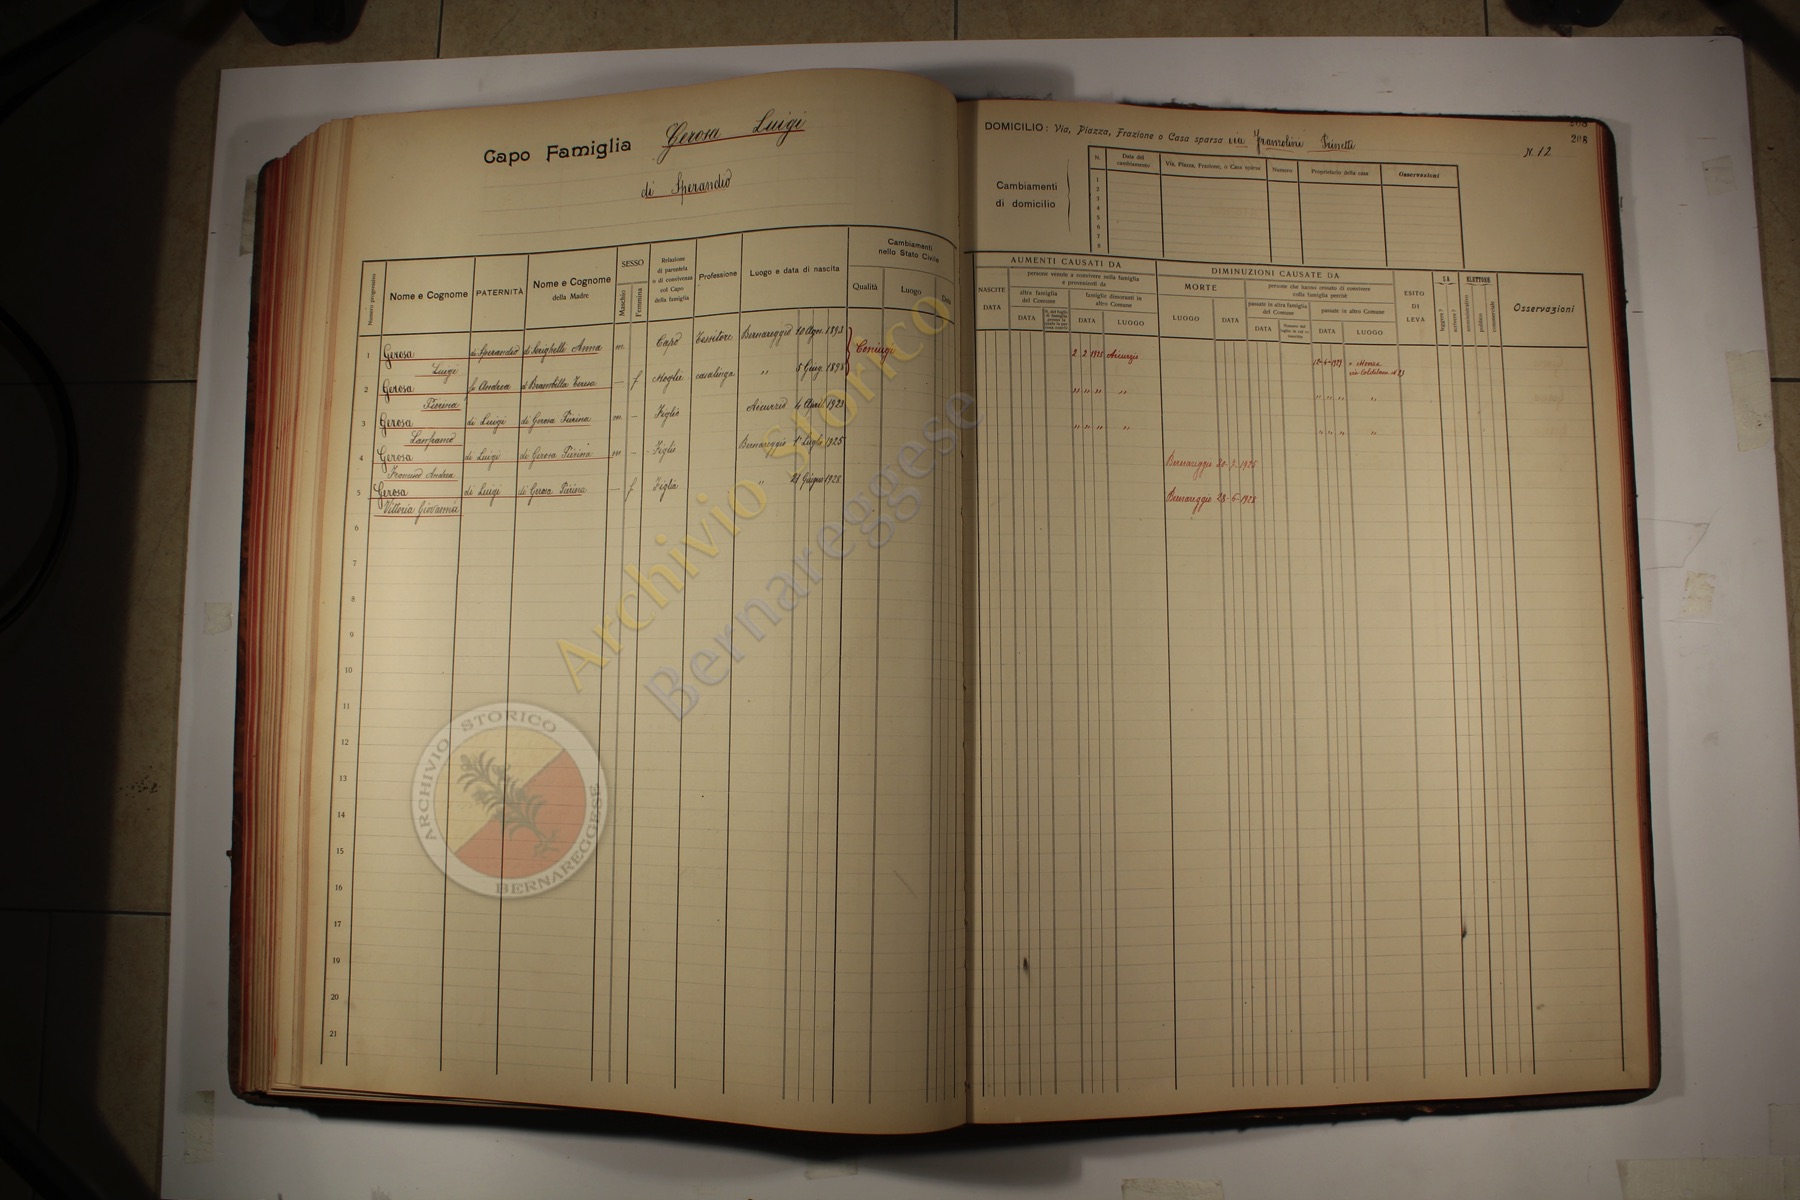 Capo Famiglia Gerosa Luigi
di Sperandio
Numero progressivo
Nome e Cognome
PATERNITÀ
Nome e Cognome
della Madre
SESSO
Maschio
Femmina
Relazione
di parentela
o di convivenza
col Capo
della famiglia
Professione
Luogo e data di nascita
Cambiamenti
nello Stato Civile
Qualità
Luogo
Data
1 Gerosa di Sperandio di Anna m Capo Tessitore Bernareggio 10 Agos. 1893 Coniugi
Luigi
2 Gerosa fu Andrea di Brambilla Teresa — f Moglie casalinga " 5 Giug. 1898
Pierina
3 Gerosa di Luigi di Gerosa Pierina m — Figlio Aicurzio 4 April 1923
Lanfranco
4 Gerosa di Luigi di Gerosa Pierina m — Figlio Bernareggio 1° Luglio 1925
Francesco Andrea
5 Gerosa di Luigi di Gerosa Pierina — f Figlia " 21 Giugno 1928
Vittoria Giovanna
6
7
8
9
10
11
12
13
14
15
16
17
18
19
20
21
208
208
DOMICILIO: Via, Piazza, Frazione o Casa sparsa via Prinetti N. 12
Cambiamenti
di domicilio
N.
Data del
cambiamento
Via, Piazza, Frazione, o Casa sparsa
Numero
Proprietario della casa
Osservazioni
1
2
3
4
5
6
7
8
AUMENTI CAUSATI DA
NASCITE
DATA
persone venute a convivere nella famiglia
e provenienti da
altra famiglia
del Comune
DATA
famiglie dimoranti in
altro Comune
DATA
LUOGO
DIMINUZIONI CAUSATE DA
MORTE
LUOGO
DATA
persone che hanno cessato di convivere
nella famiglia perchè
passate in altra famiglia
del Comune
DATA
passate in altro Comune
DATA
LUOGO
ESITO
DI
LEVA
SA
leggere?
scrivere?
ELETTORE
amministrativo
politico
commerciale
Osservazioni
2 2 1925 Aicurzio 12-6-1929 a Monza
" " " " " " " "
" " " " " " " "
Bernareggio 30-7-1925
Bernareggio 28-6-1928
Archivio Storico
Bernareggese
ARCHIVIO STORICO
BERNAREGGESE